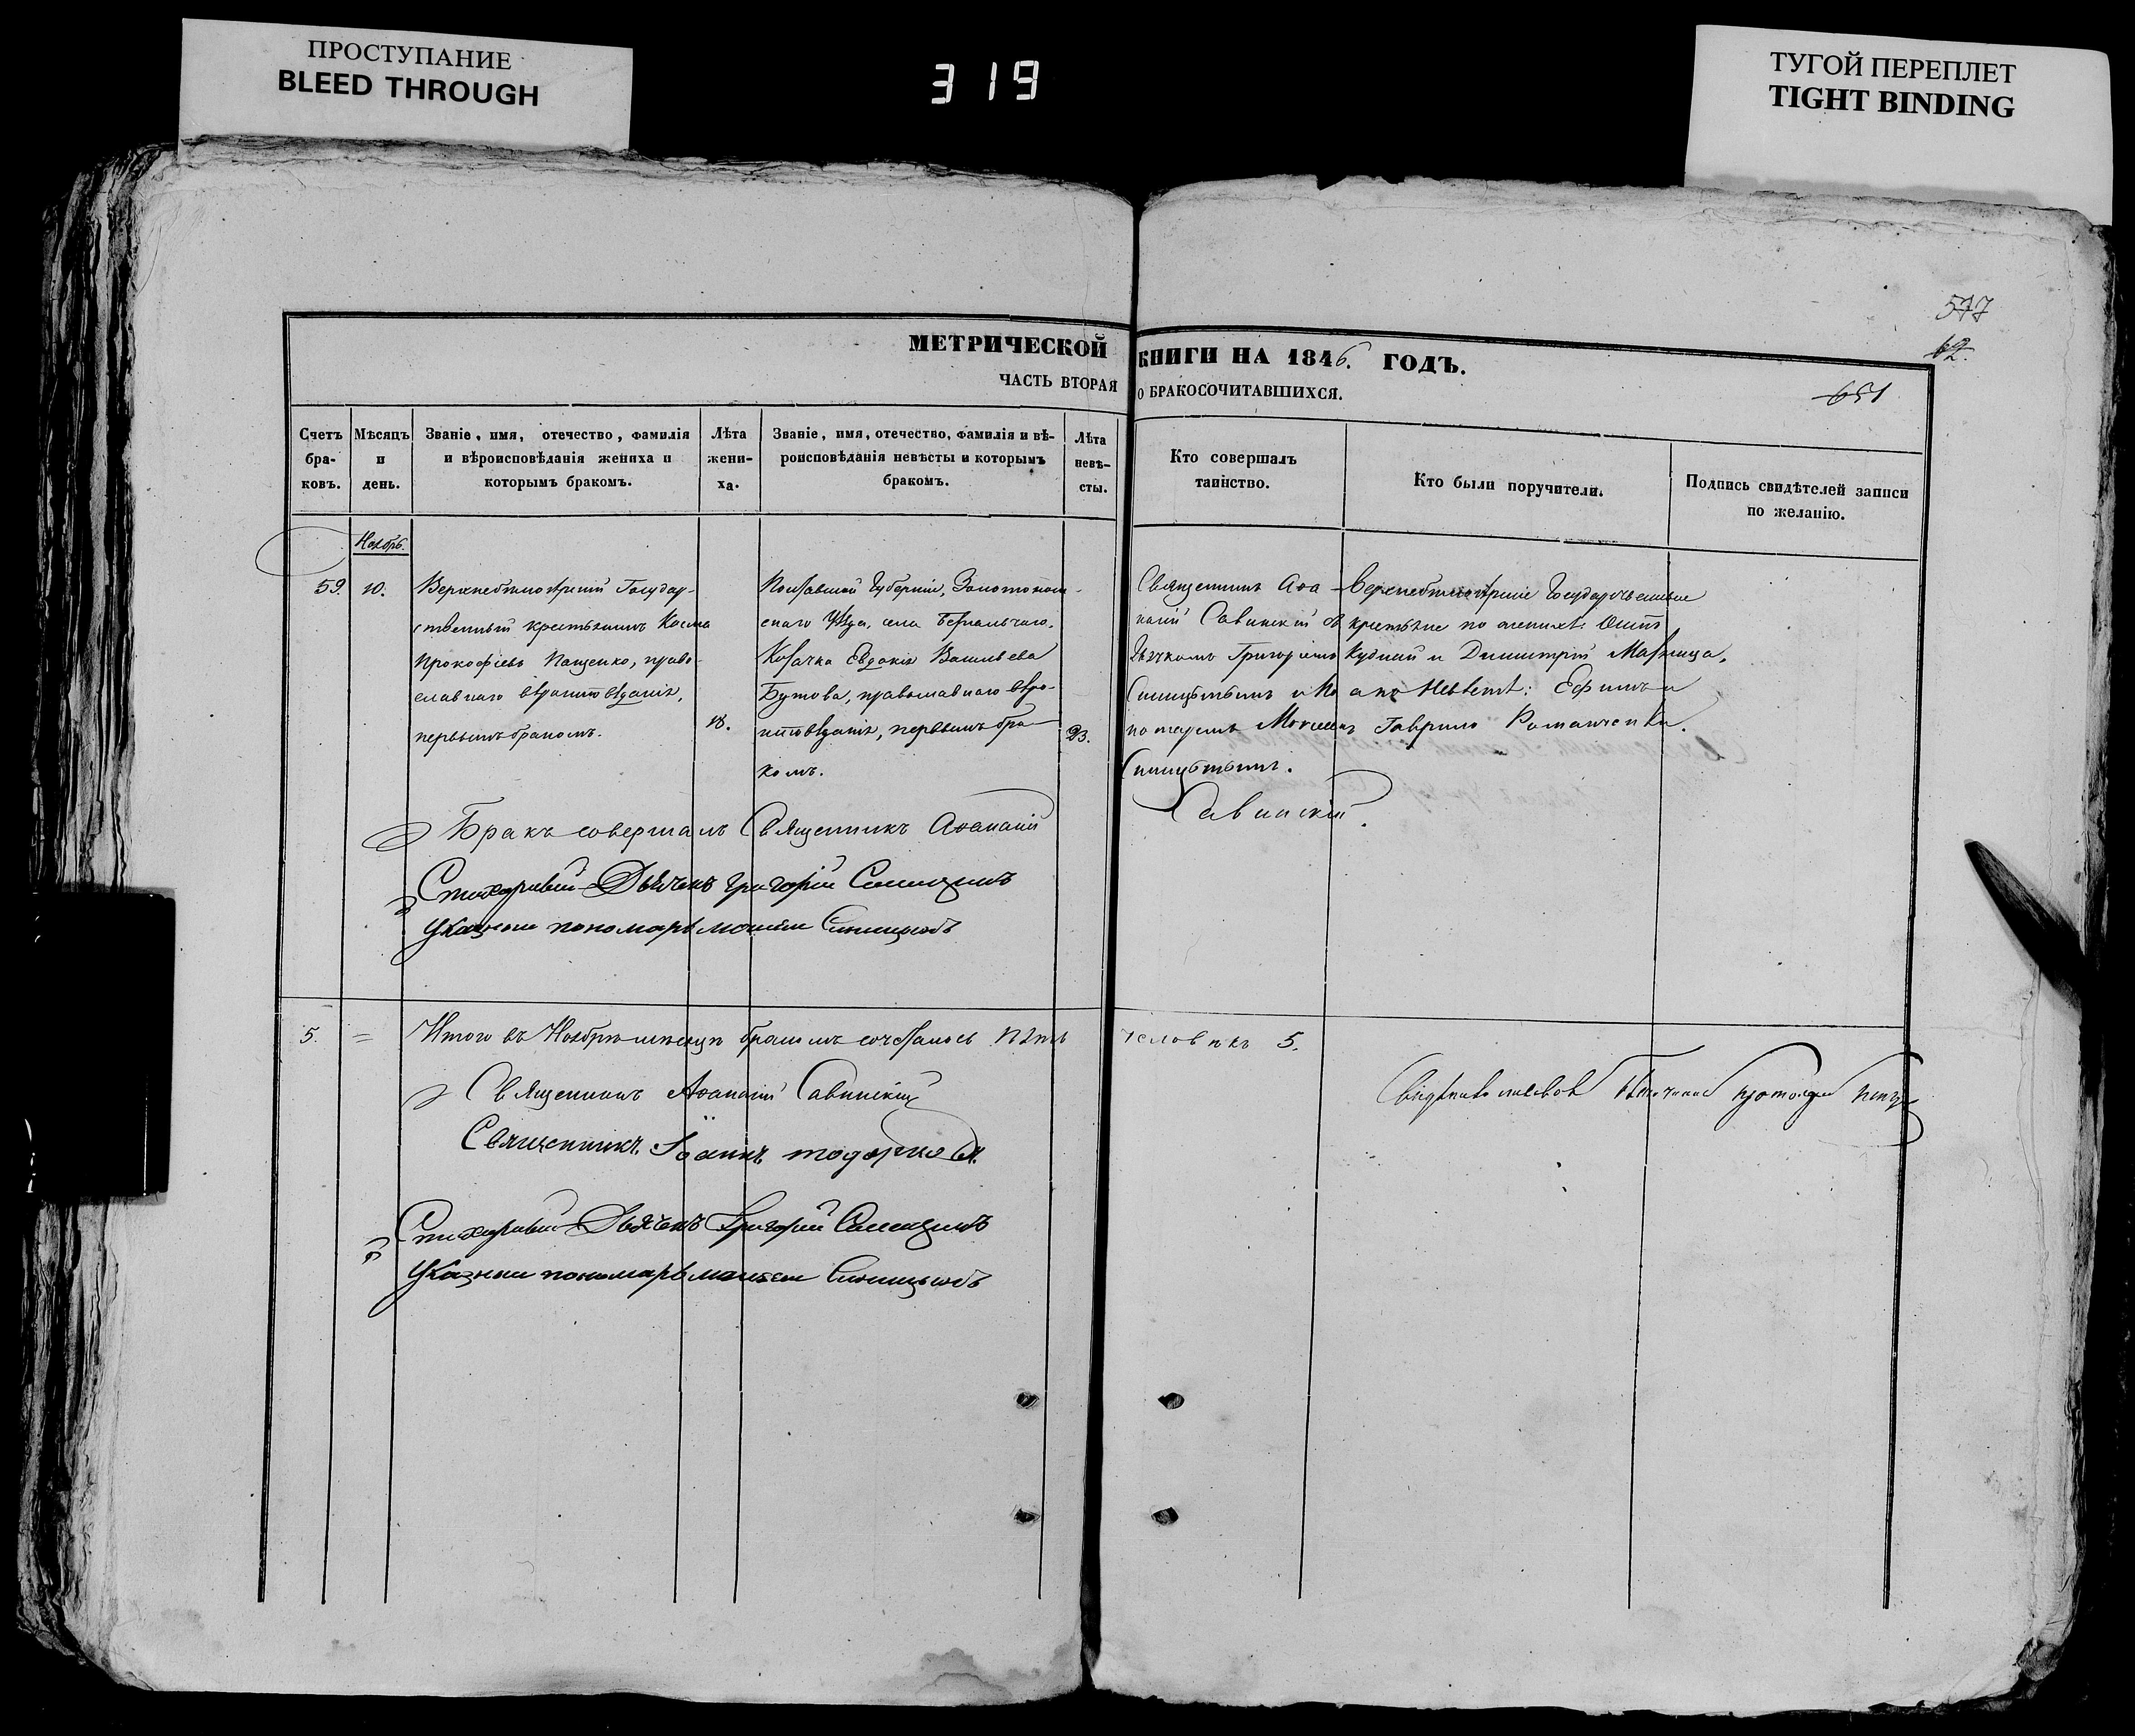 ПРОСТУПАНИЕ
BLEED THROUGH
319
ТУГОЙ ПЕРЕПЛЕТ
TIGHT BINDING
577
62.
651
МЕТРИЧЕСКОЙ КНИГИ НА 1846. ГОДЪ.
ЧАСТЬ ВТОРАЯ О БРАКОСОЧИТАВШИХСЯ.
Счетъ бра- ковъ.
Мѣсяцъ и день.
Званіе, имя, отечество, фамилія
и вѣроисповѣданія жениха и
которымъ бракомъ.
Лѣта жени- ха.
Званіе, имя, отечество, фамилія и вѣ-
роисповѣданія невѣсты и которымъ
бракомъ.
Лѣта невѣ- сты.
Кто совершалъ
таинство.
Кто были поручители.
Подпись свидѣтелей записи
по желанію.
Ноябрь.
59. 10.
Государ-
ственный крестьянинъ Косма
Прокофіевъ Пащенко, право-
славнаго вѣроисповѣданія,
первымъ бракомъ.
18.
Полтавской Губерніи, Золотонош-
скаго Уѣзда, села
Козачка Евдокія Васильева
Бутова, православнаго вѣро-
исповѣданія, первымъ бра-
комъ.
23.
Священникъ Аѳа-
насій Савинскій съ
Дьячкомъ Григоріемъ
Синицынымъ и По
номаремъ Моисеемъ
Синицынымъ.
Государственные
крестьяне по женихѣ: Осипъ
Кудкий и Димитрій
а по Невѣстѣ: Ефимъ и
Гаврило Романченки.
Бракъ совершалъ Священникъ Аѳанасій Савинскій.
Стихарный Дьячекъ Григорій Синицынъ
Указный пономарь Моисей Синицынъ
5. = Итого въ Ноябрѣ мѣсяцѣ бракомъ сочеталось пять человѣкъ 5.
Священникъ Аѳанасій Савинскій
Священникъ Іоаннъ
Стихарный Дьячекъ Григорій Синицынъ
Указный пономарь Моисей Синицынъ